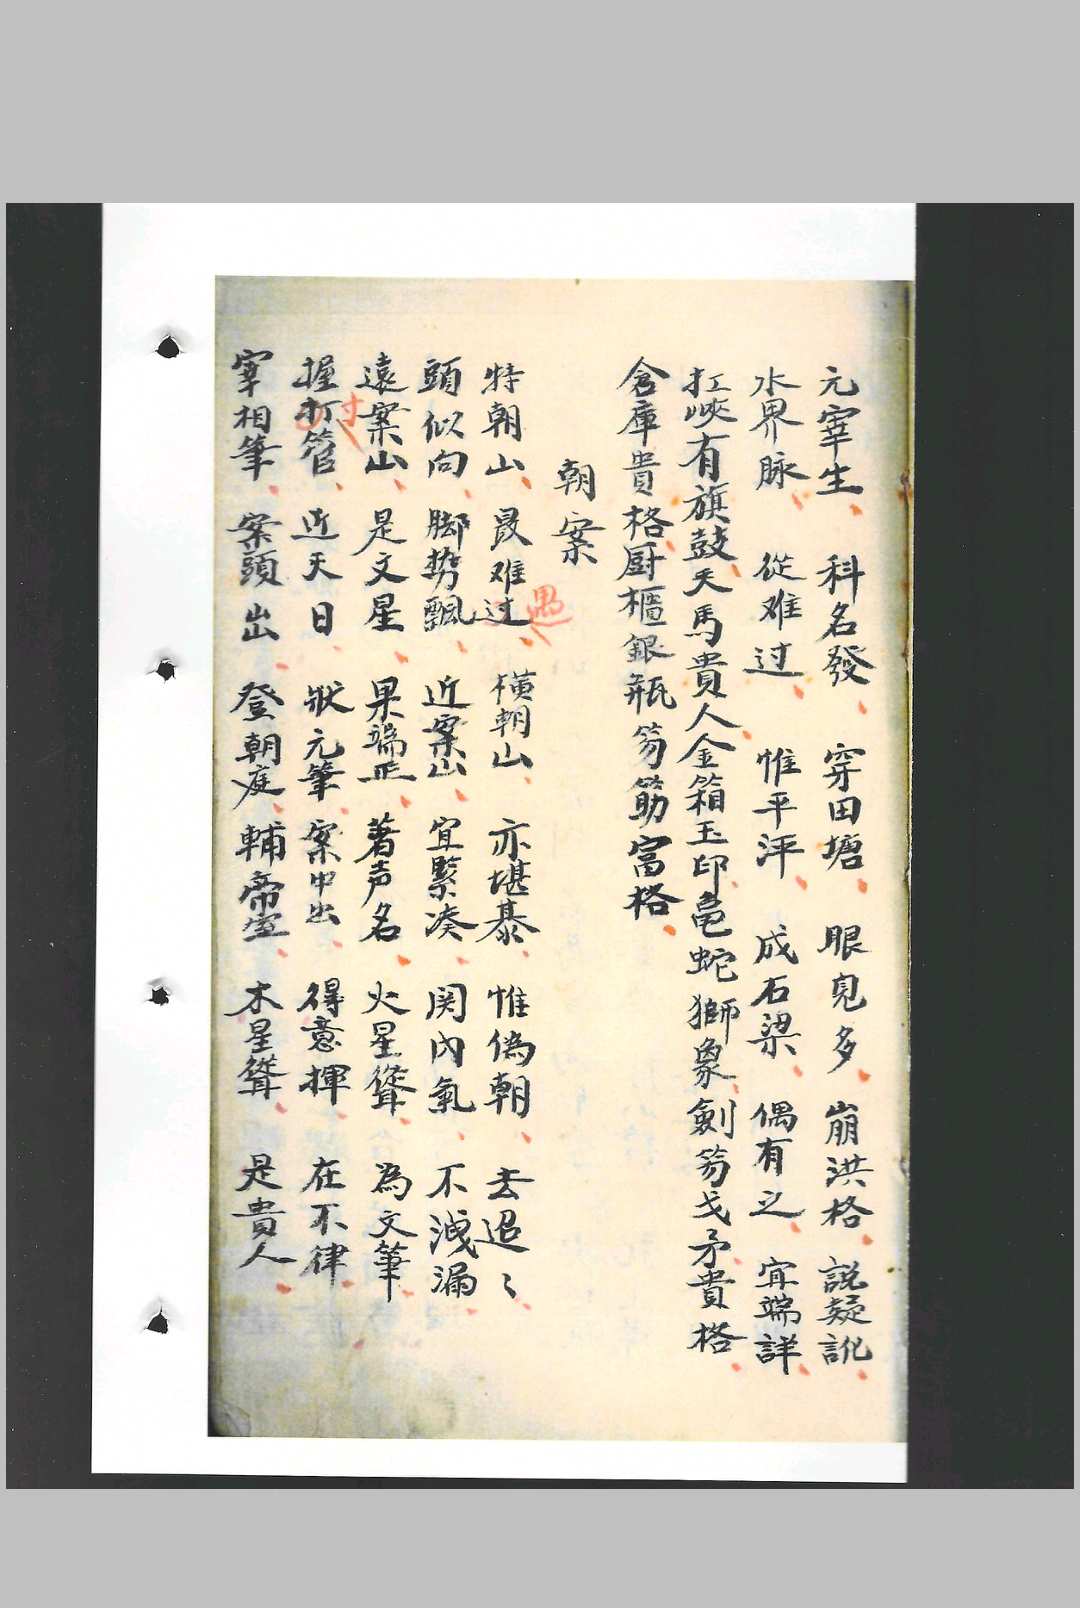 元宰生、科名發、穿田塘、眼見多、崩洪格、說疑訛、
水界脉、從难过、惟平洋、成石梁、偶有之、宜端詳、
扛峽有旗鼓、天馬貴人、金箱玉印、亀蛇獅象、劍笏戈矛貴格、
倉庫貴格、厨櫃銀瓶笏筯富格、
朝案
特朝山、最难过、横朝山、亦堪慕、惟偽朝、去迢〻、
愚
頭似向、脚勢飄、近案山、宜緊凑、関内氣、不洩漏、
遠案山、是文星、果端正、著声名、火星聳、為文筆、
握打管、近天日、狀元筆、案中出、得意揮、在不律、
寸
宰相筆、案頭出、登朝庭、輔帝室、木星聳、是貴人、